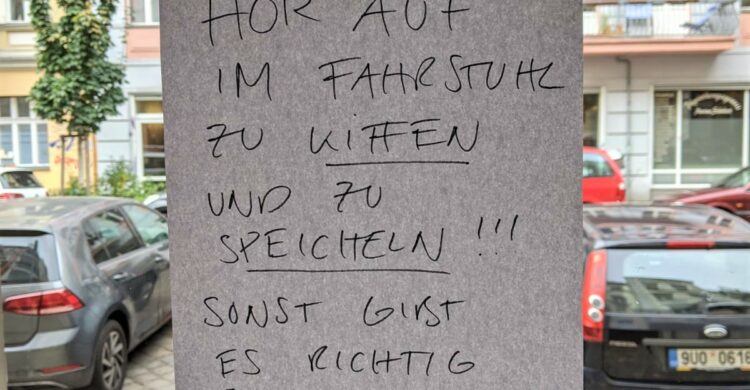 HÖR AUF
IM FAHRSTUHL
ZU KIFFEN
UND ZU
SPEICHELN !!!
SONST GIBT
ES RICHTIG
9U0 0616